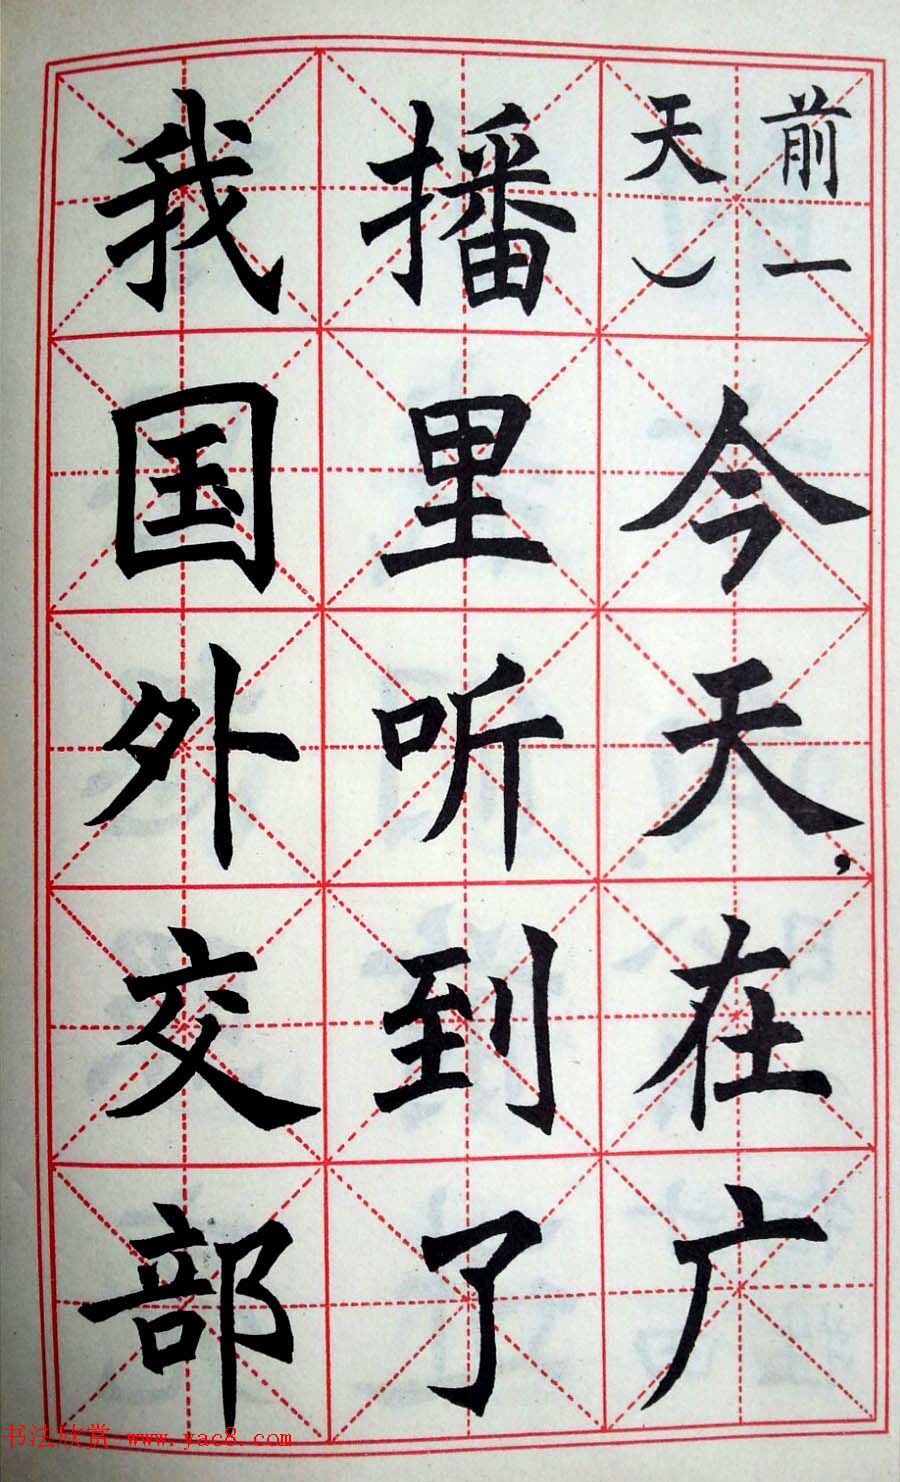 前一
天）
今天，在广
播里听到了
我国外交部
书法欣赏 www.yac8.com